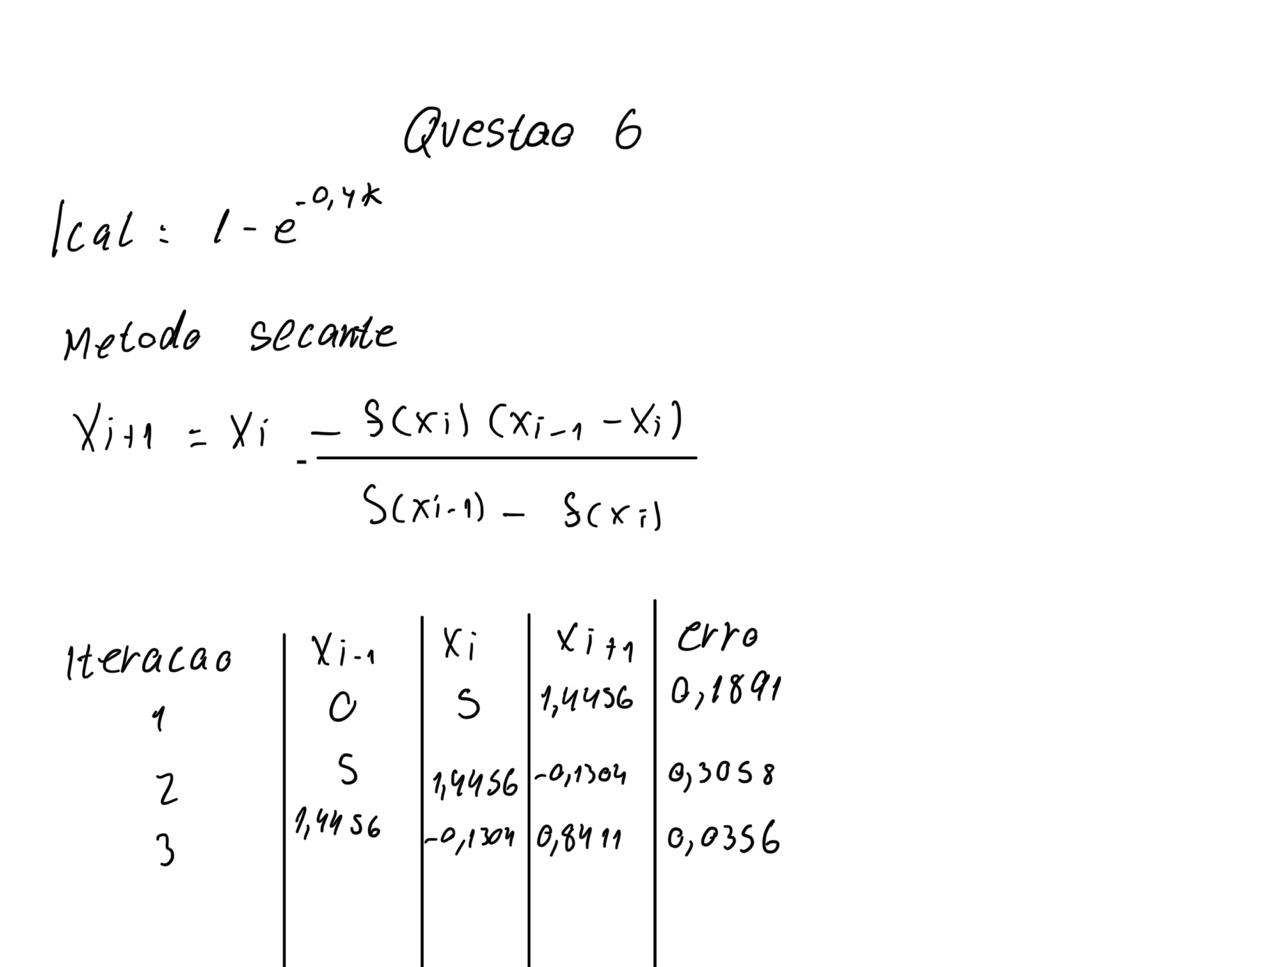 Questao 6
Ical = 1 - e^-0,4k
Metodo secante
Xi+1 = Xi - f(xi) (xi-1 - xi)
f(xi-1) - f(xi)
Iteracao Xi-1 Xi Xi+1 erro
1 0 5 1,4456 0,1891
2 5 1,4456 -0,1304 0,3058
3 1,4456 -0,1304 0,8411 0,0356